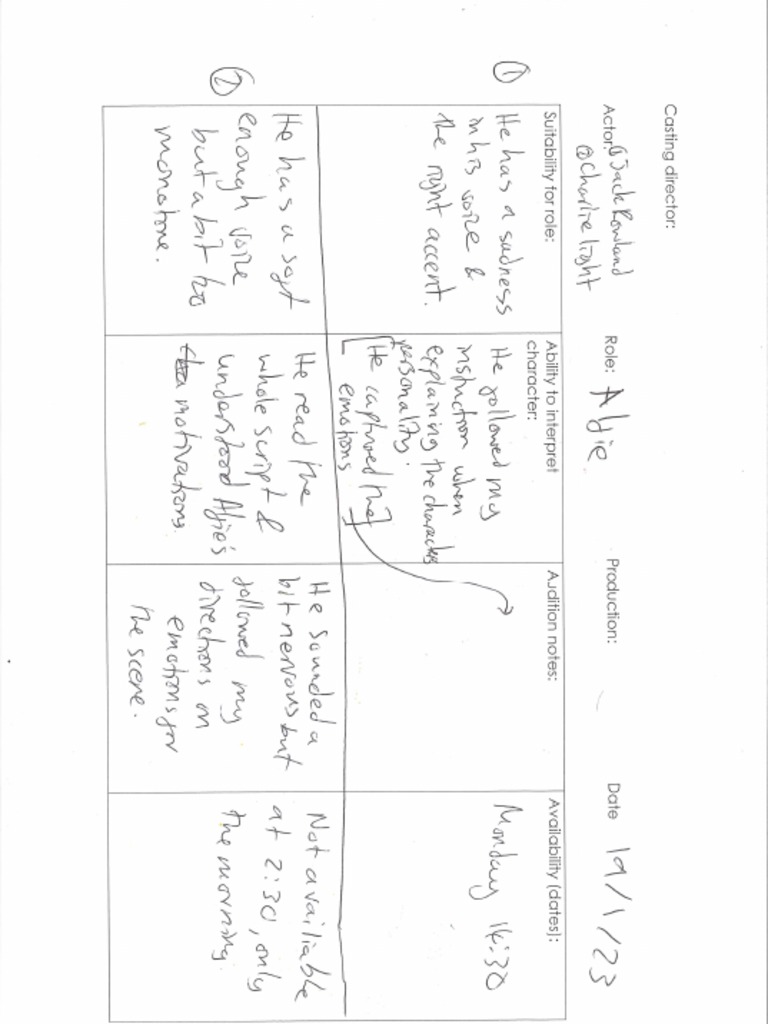 Casting director:
Actor: ① Jack Rowland
② Charlie light
Role: Alfie
Production:
Date 19/1/23
Suitability for role:
Ability to interpret
character:
Audition notes:
Availability (dates):
①
He has a sadness
in his voice &
the right accent.
He followed my
instruction when
explaining the characters
personality.
[He captured the]
emotions
Monday 14:30
②
He has a soft
enough voice
but a bit too
monotone.
He read the
whole script &
understood Alfie's
motivations.
He sounded a
bit nervous but
followed my
directions on
emotions for
the scene.
Not availiable
at 2:30, only
the morning.